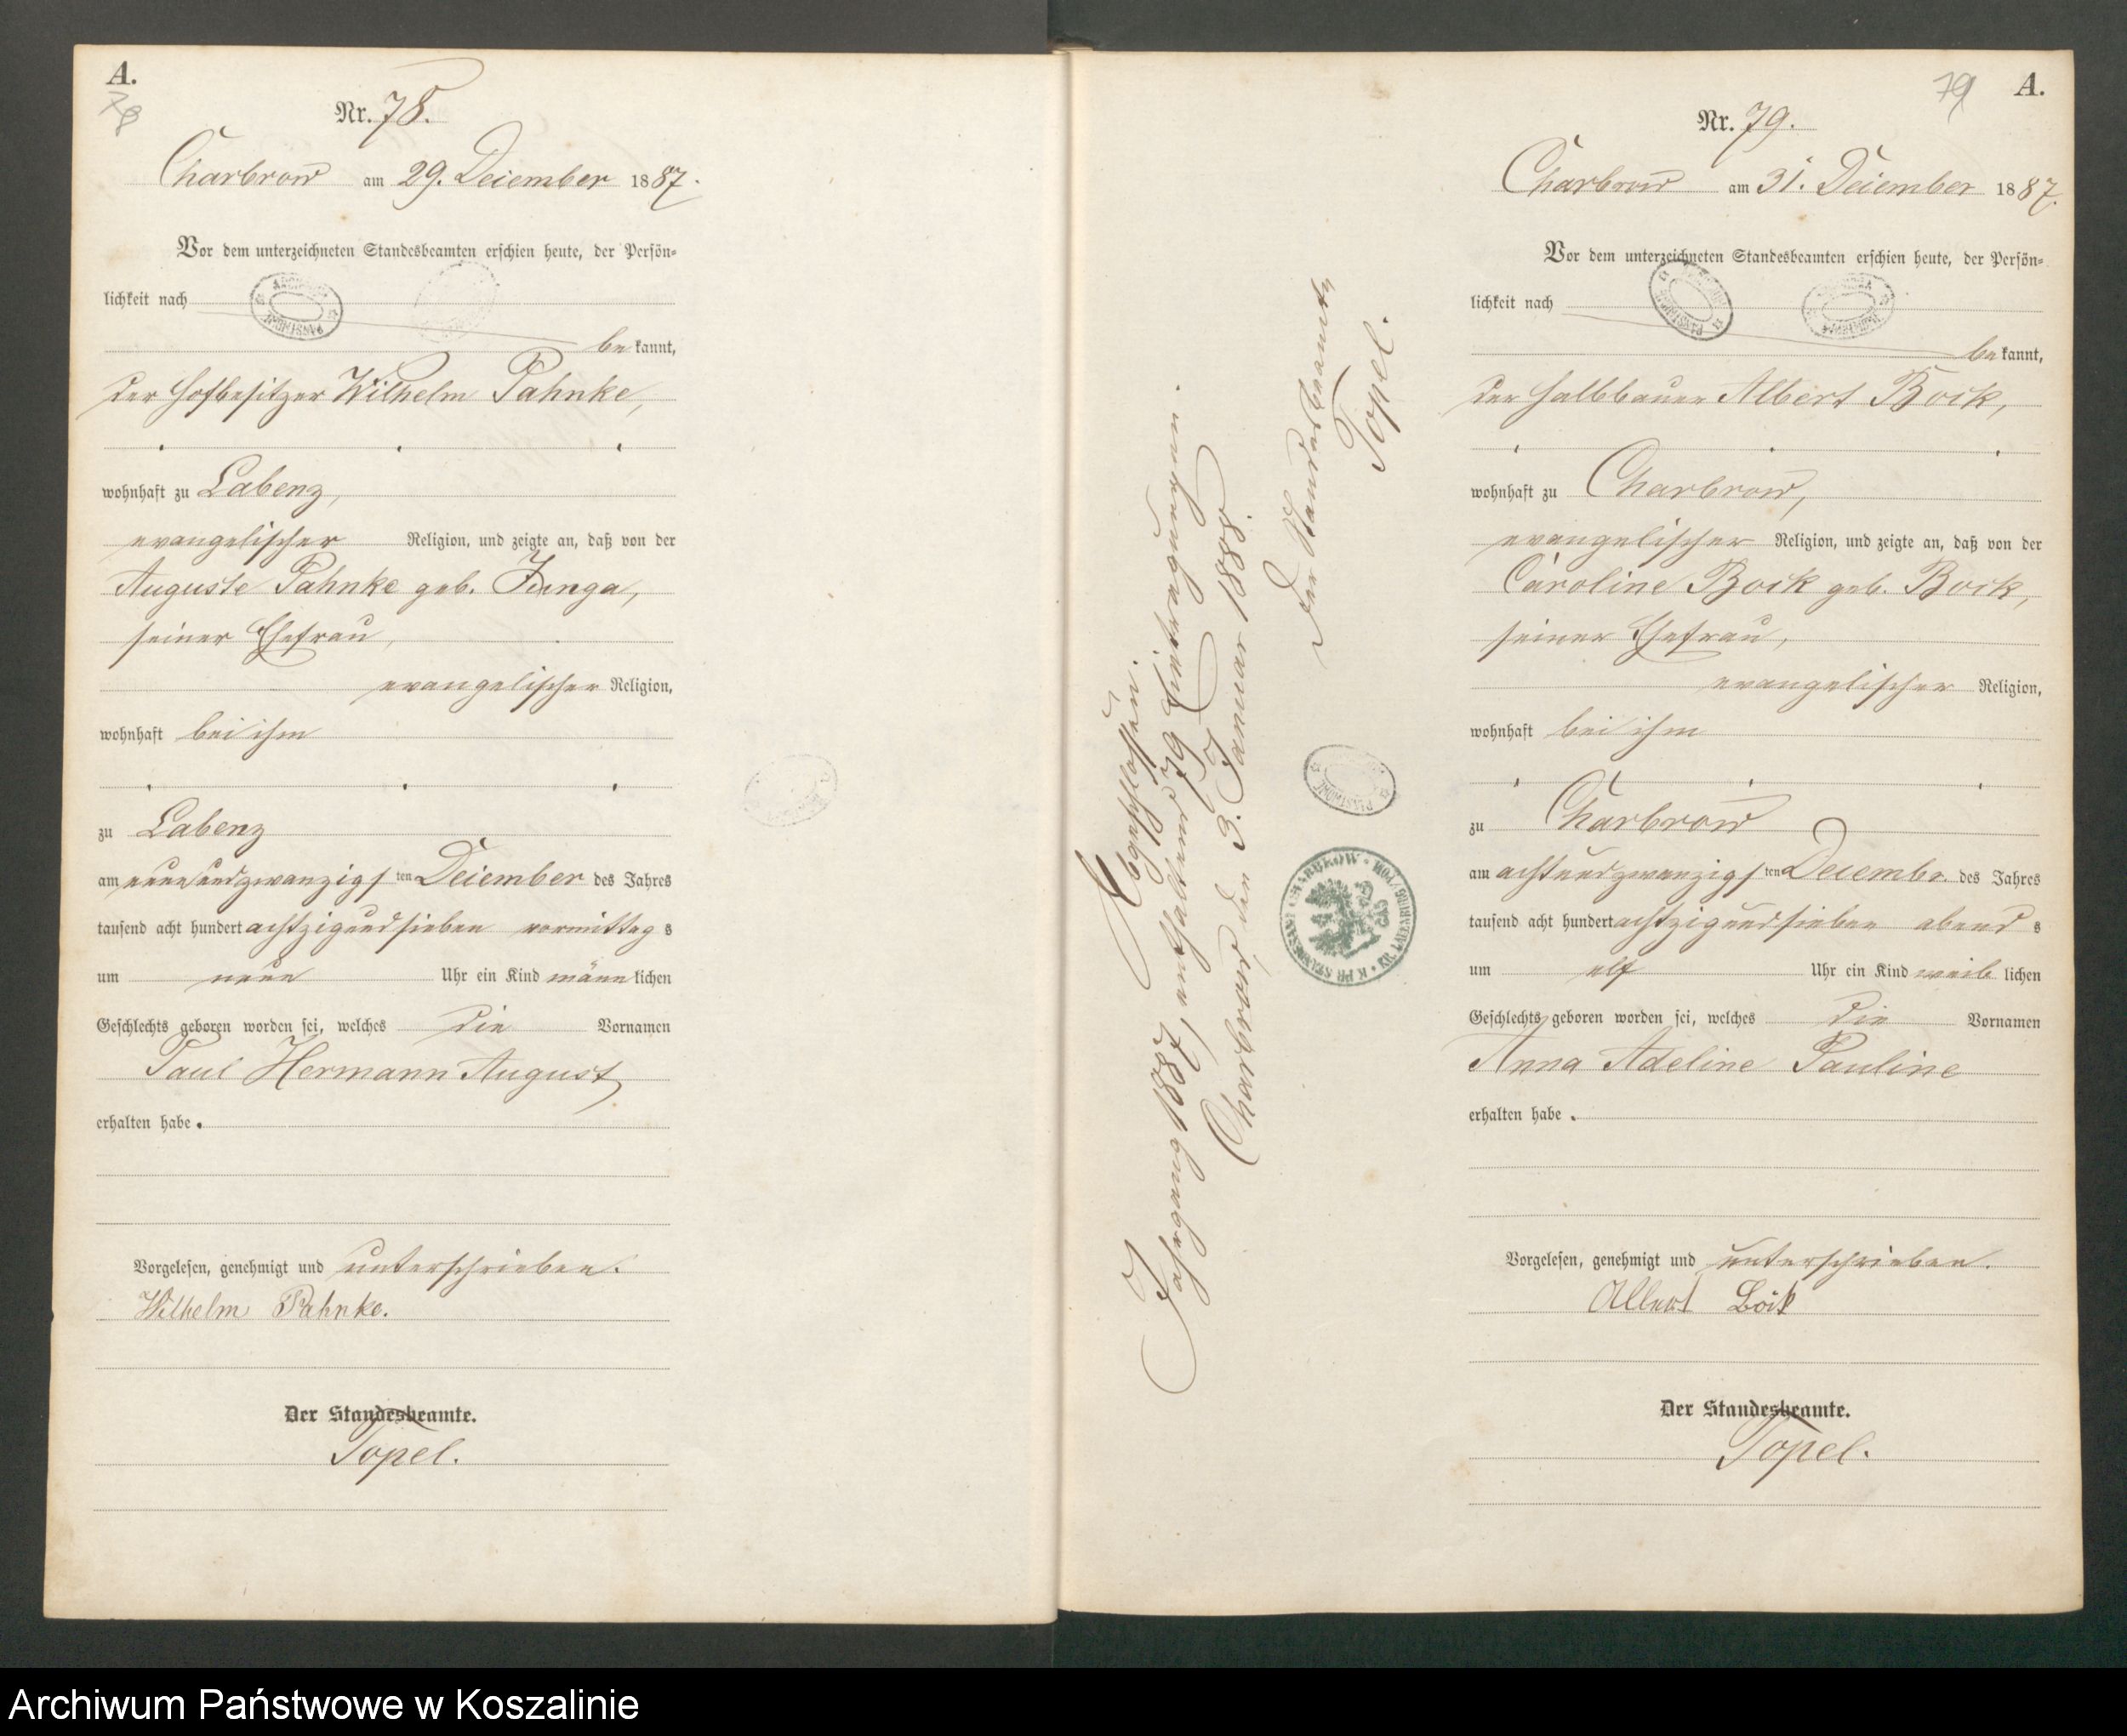 A.
78
Nr. 78.
Charbrow am 29. December 1887.
Vor dem unterzeichneten Standesbeamten erschien heute, der Persön-
lichkeit nach
bekannt,
der Hofbesitzer Wilhelm Pahnke,
wohnhaft zu Labenz,
evangelischer Religion, und zeigte an, daß von der
Auguste Pahnke geb. Janga,
seiner Ehefrau,
evangelischer Religion,
wohnhaft bei ihm
zu Labenz
am neunundzwanzigsten December des Jahres
tausend acht hundert achtzigundsieben vormittags
um neun Uhr ein Kind männlichen
Geschlechts geboren worden sei, welches die Vornamen
Paul Hermann August
erhalten habe.
Vorgelesen, genehmigt und unterschrieben.
Wilhelm Pahnke.
Der Standesbeamte.
Topel.
Abgeschlossen.
Jahrgang 1887, enthaltend 79 Eintragungen.
Charbrow, den 3. Januar 1888.
Der Standesbeamte
Topel.
79 A.
Nr. 79.
Charbrow am 31. December 1887.
Vor dem unterzeichneten Standesbeamten erschien heute, der Persön-
lichkeit nach
bekannt,
der Halbbauer Albert Bock,
wohnhaft zu Charbrow,
evangelischer Religion, und zeigte an, daß von der
Caroline Bock geb. Bock,
seiner Ehefrau,
evangelischer Religion,
wohnhaft bei ihm
zu Charbrow
am achtundzwanzigsten Decembr. des Jahres
tausend acht hundert achtzigundsieben abends
um elf Uhr ein Kind weiblichen
Geschlechts geboren worden sei, welches die Vornamen
Anna Adeline Pauline
erhalten habe.
Vorgelesen, genehmigt und unterschrieben.
Albert Bock
Der Standesbeamte.
Topel.
Archiwum Państwowe w Koszalinie